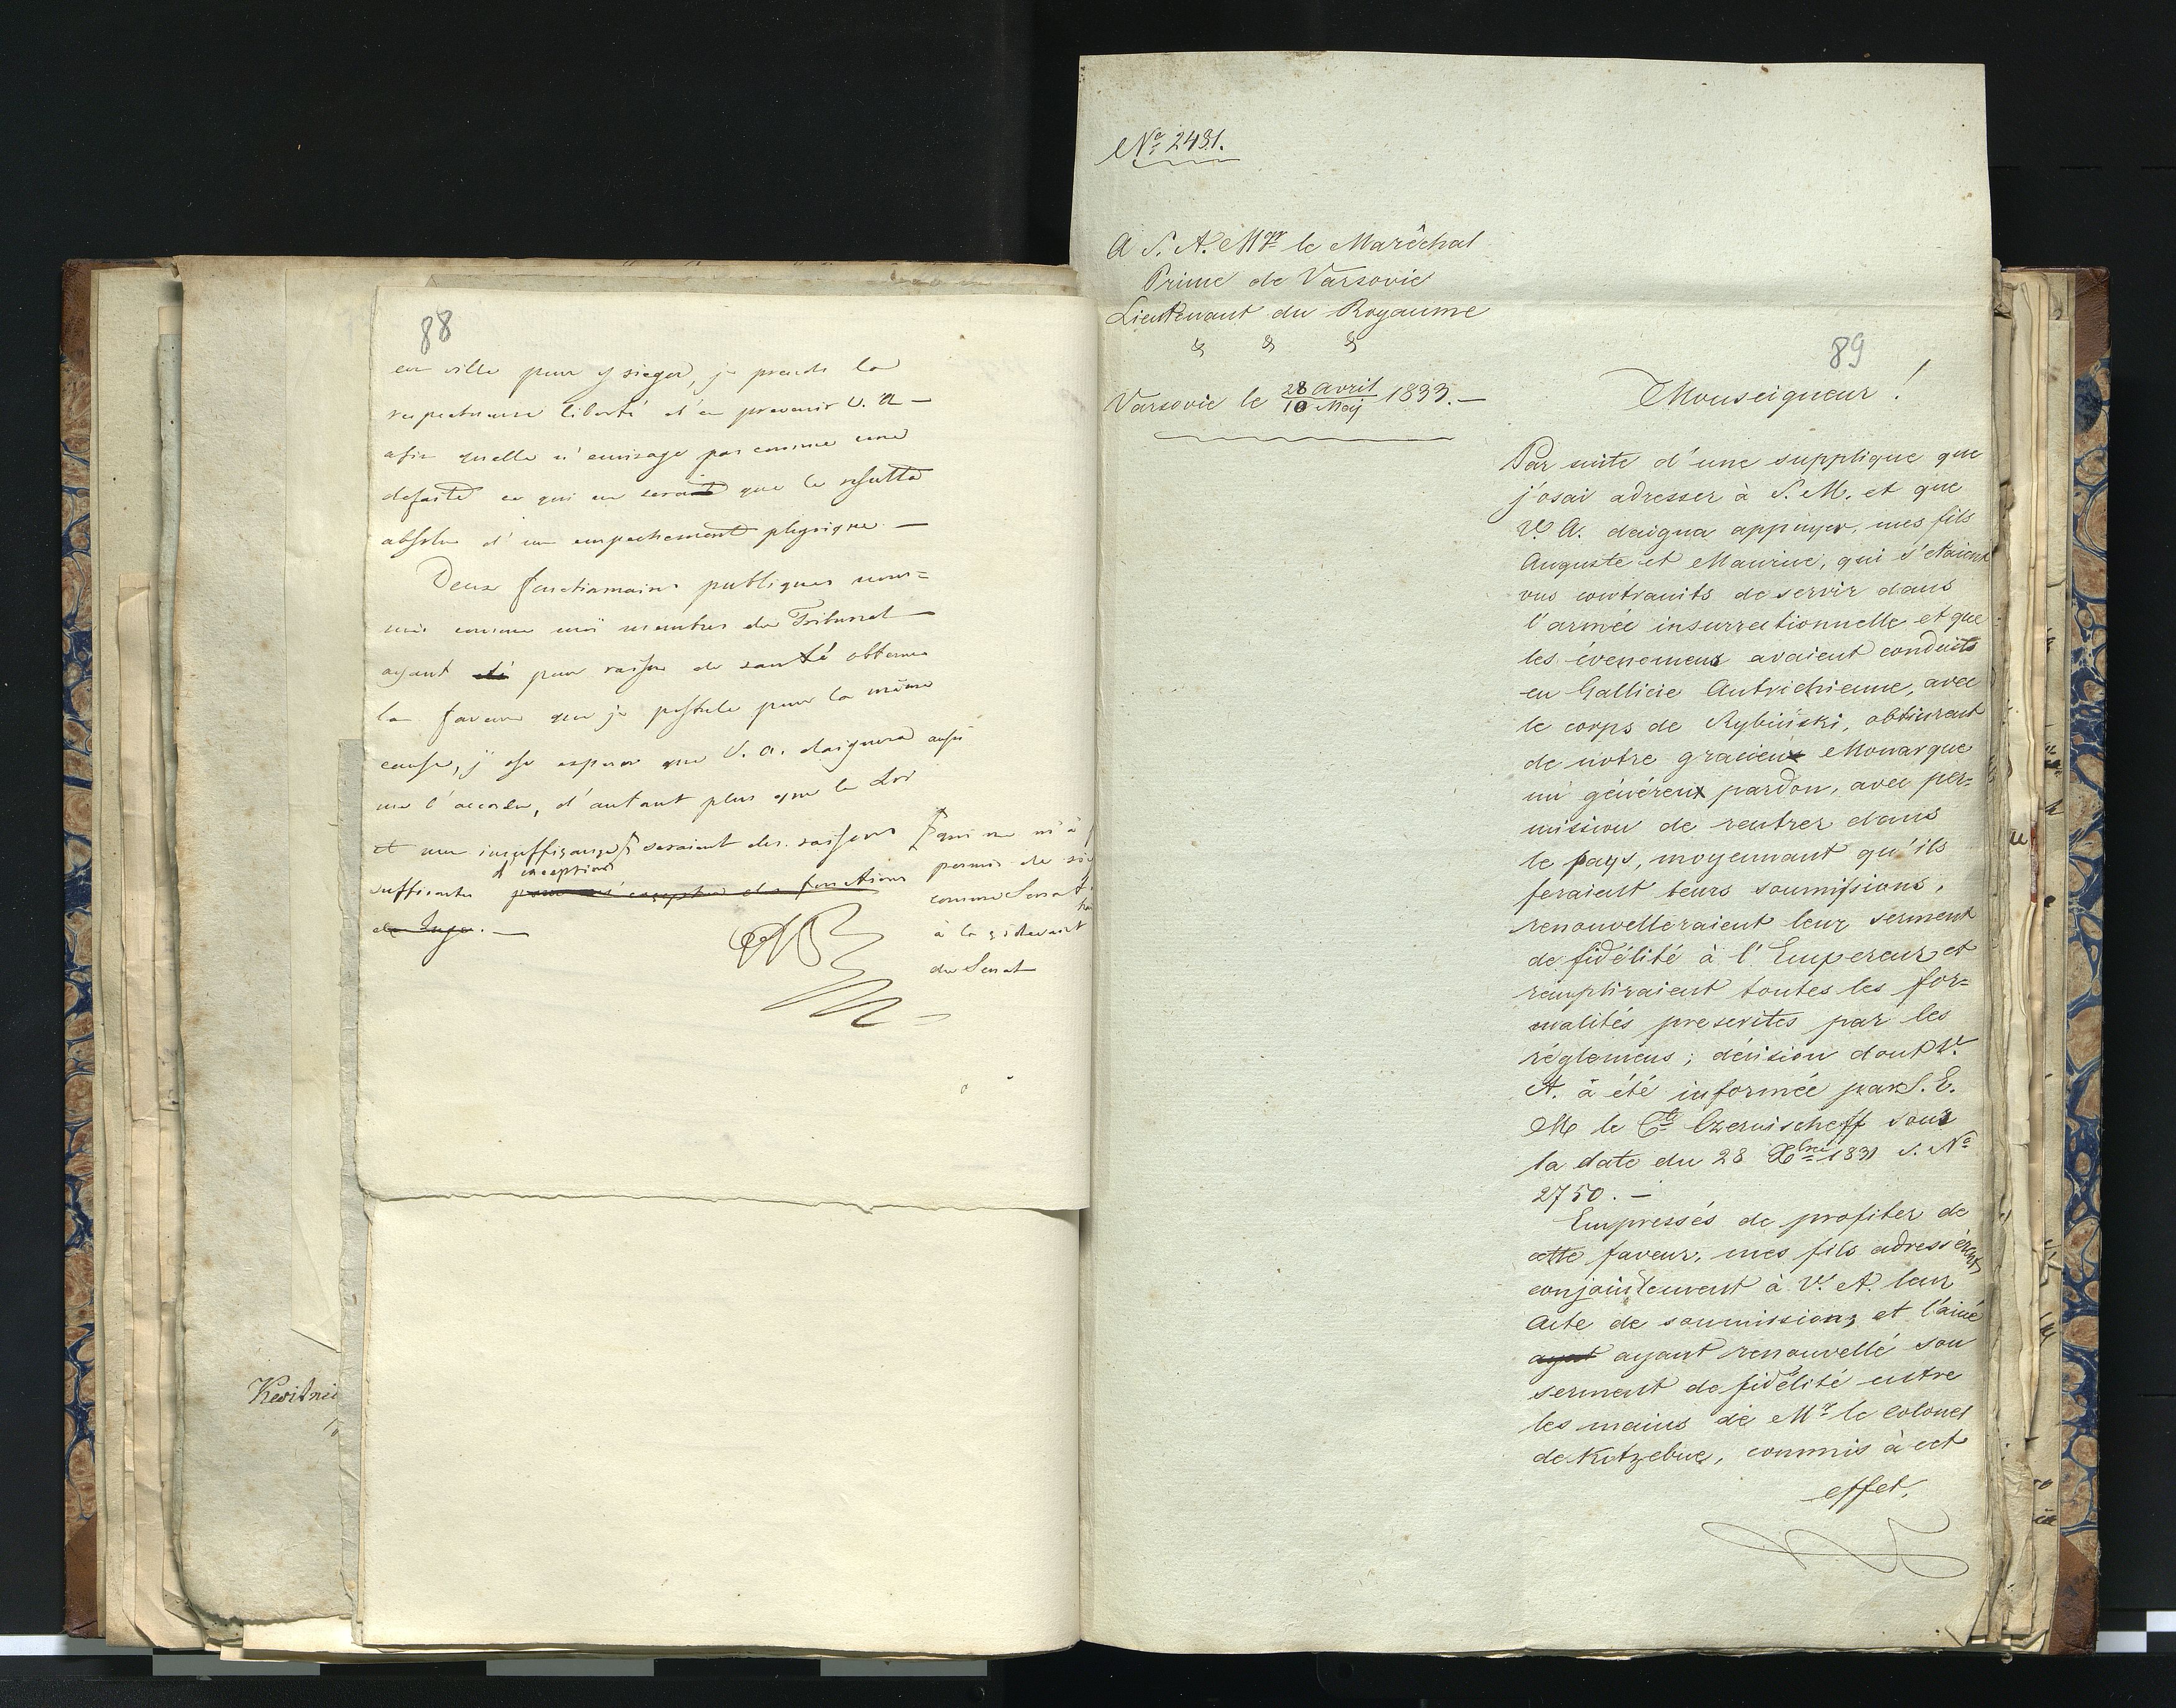 88
en ville pour y sieger, je prends la
respectueuse liberté d'en prevenir V. A —
afin quelle n'envisage pas comme une
defaite ce qui ne serait que le resultat
absolu d'un empechement physique. —
Deux fonctionnaires publiques nom=
més comme moi membres du Tribunal
ayant été pour raison de santé obtenu
la faveur que je postule pour la même
cause, j'ose esperer que V. A. daignera aussi
me l'accorder, d'autant plus que la Loi
et mon insuffisance seraient des raisons
d'exception
suffisantes
de Juge. —
qui ne m'a
permis de
comme Senat
à la cidevant
du Senat
Kwitnie
No 2431.
A S. A. Mgr le Maréchal
Prince de Varsovie
Lieutenant du Royaume
& & &
Varsovie le 28 Avril / 10 Maj 1833. —
89
Monseigneur!
Par suite d'une supplique que
j'osai adresser à S. M. et que
V. A. daigna appuyer, mes fils
Auguste et Maurice, qui s'étaient
vus contraints de servir dans
l'armée insurrectionnelle et que
les évenemens avaient conduits
en Gallicie Autrichienne, avec
le corps de Rybiński, obtinrent
de notre gracieux Monarque
un généreux pardon, avec per=
mission de rentrer dans
le pays, moyennant qu'ils
feraient leurs soumissions,
renouvelleraient leur serment
de fidélité à l'Empereur et
rempliraient toutes les for=
malités prescrites par les
réglemens; décision dont V.
A. à été informée par S. E.
M le Cte Czernischeff sous
la date du 28 Xbre 1831 s. No
2750. —
Empressés de profiter de
cette faveur, mes fils adressèrent
conjointement à V. A. leur
Acte de soumission, et l'ainé
ayant ayant renouvellé son
serment de fidélité entre
les mains de Mr le Colonel
de Kotzebue, commis à cet
effet,